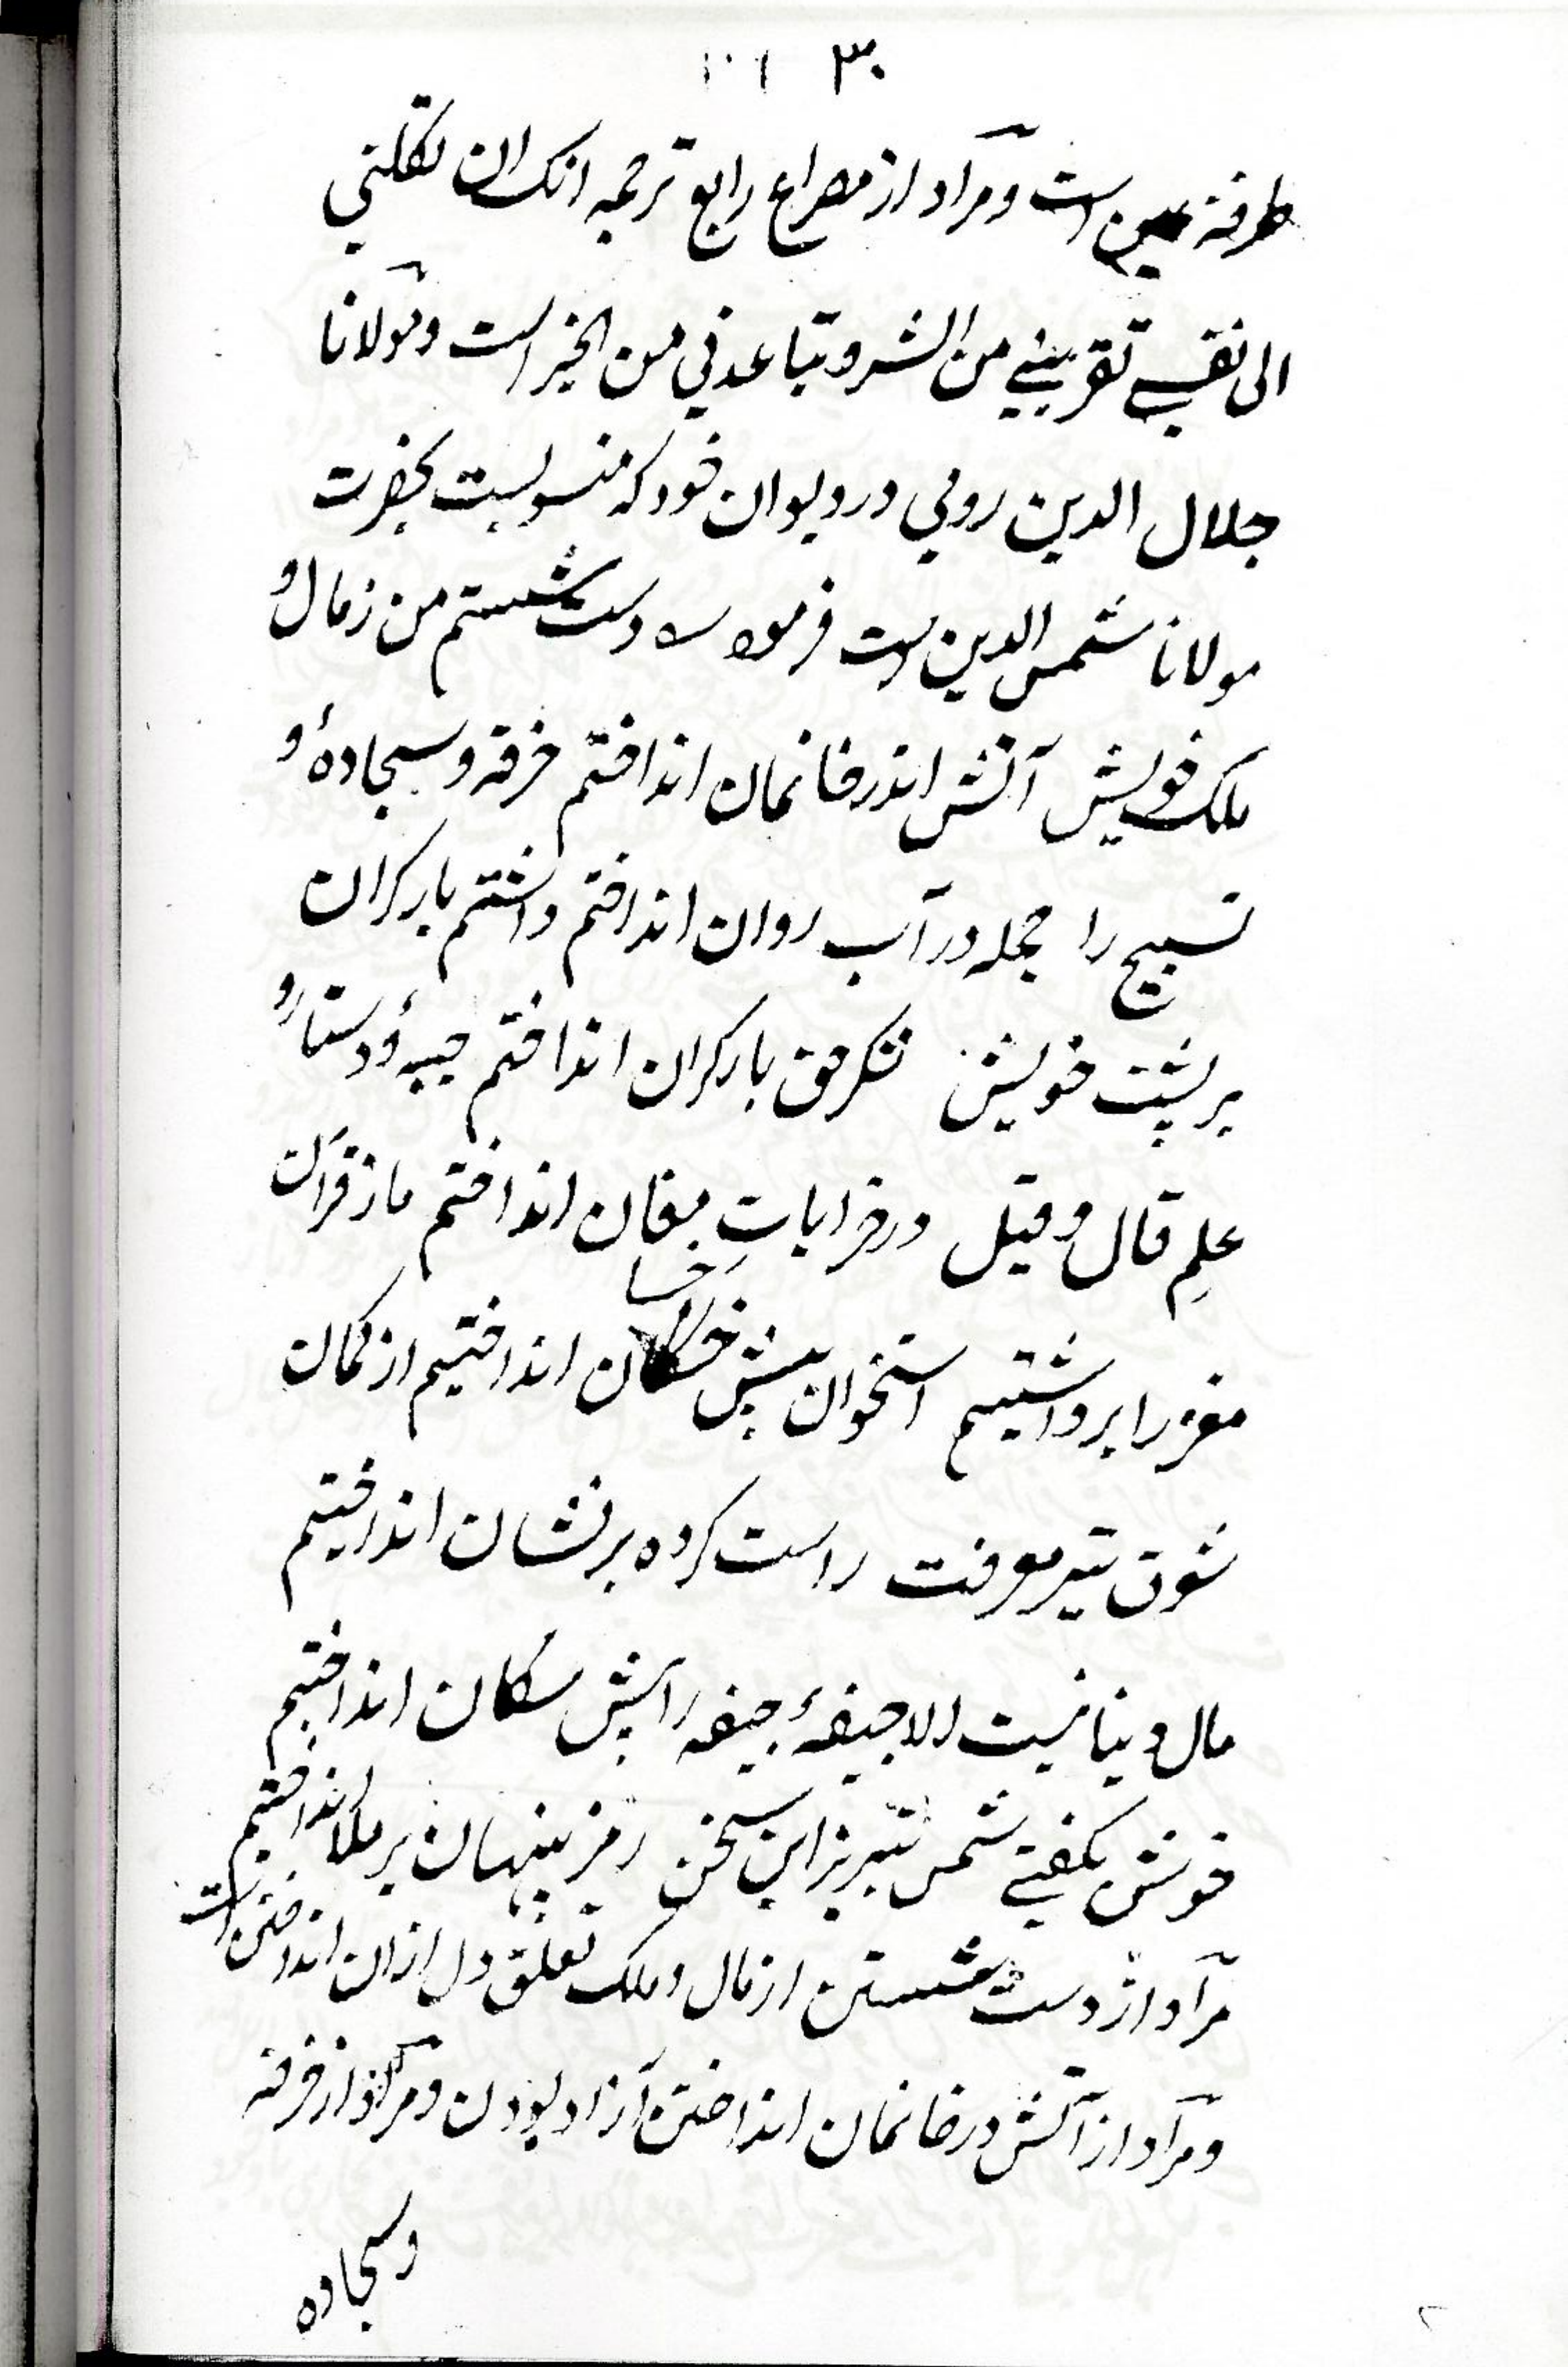 ۳۰
طرفة عین است و مراد از مصراع رابع ترجمه انک ان تکلنی
الی نفسے تقربنے من الشر و تباعدنی من الخیر است و مولانا
جلال الدین رومی در دیوان خود که منسوبست بحضرت
مولانا شمس الدین ست فرموده دست شستم من ز مال و
ملک خویش آتش اندر خانمان انداختم خرقه و سجادهٔ و
تسبیح را جمله در آب روان انداختم داشتم بار کران
بر پشت خویش شکر حق بار کران انداختم جبهٔ و دستار و
علمِ قال و قیل در خراباتِ مغان انداختم ما ز قرآن
مغز را برداشتیم استخوان پیش خسان انداختیم از کمان
شوق تیر معرفت راست کرده بر نشان انداختیم
مال دنیا نیست الا جیفهٔ جیفه را پیش سکان انداختیم
خوش بکفتے شمس تبریز این سخن رمز پنهان بر ملا انداختیم
مراد از دست شستن از مال و ملک تعلق دل ازان انداختن است
و مراد از آتش در خانمان انداختن آزاد بودن و مراد از خرقه
و سجاده